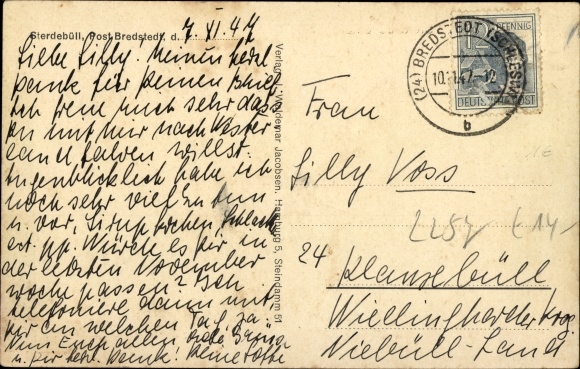 Sterdebüll, Post Bredstedt, d. 7. XI. 47
Liebe Lilly. Meinen herzl
danke für deinen Brief
Ich freue mich sehr dass
du mit mir nach Oster
land fahren willst.
Augenblicklich habe ich
noch sehr viel zu tun
u. vor, Sirup kochen, Schlach
ert. pp. Würde es dir in
der letzten November
woche passen? Ich
telefoniere dann mit
dir an welchen Tag, ja.
Nun Euch allen, liebe Grüsse
u. dir herzl. danke!
Verlag: Woldemar Jacobsen, Hamburg 5, Steindamm 51
(24) BREDSTEDT (SCHLESW)
10.11.47.-12
b
PFENNIG
12
DEUTSCHE POST
Frau
Lilly Voss
24 Klanxbüll
Wiedingharder
Niebüll-Land